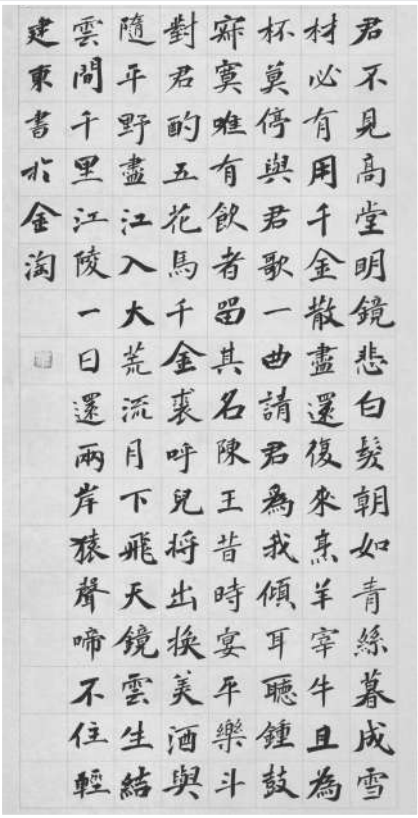 君不見高堂明鏡悲白髮朝如青絲暮成雪
材必有用千金散盡還復來烹羊宰牛且為
杯莫停與君歌一曲請君爲我傾耳聽鍾鼓
寂寞唯有飲者留其名陳王昔時宴平樂斗
對君酌五花馬千金裘呼兒將出換美酒與
隨平野盡江入大荒流月下飛天鏡雲生結
雲間千里江陵一日還兩岸猿聲啼不住輕
建東書於金淘